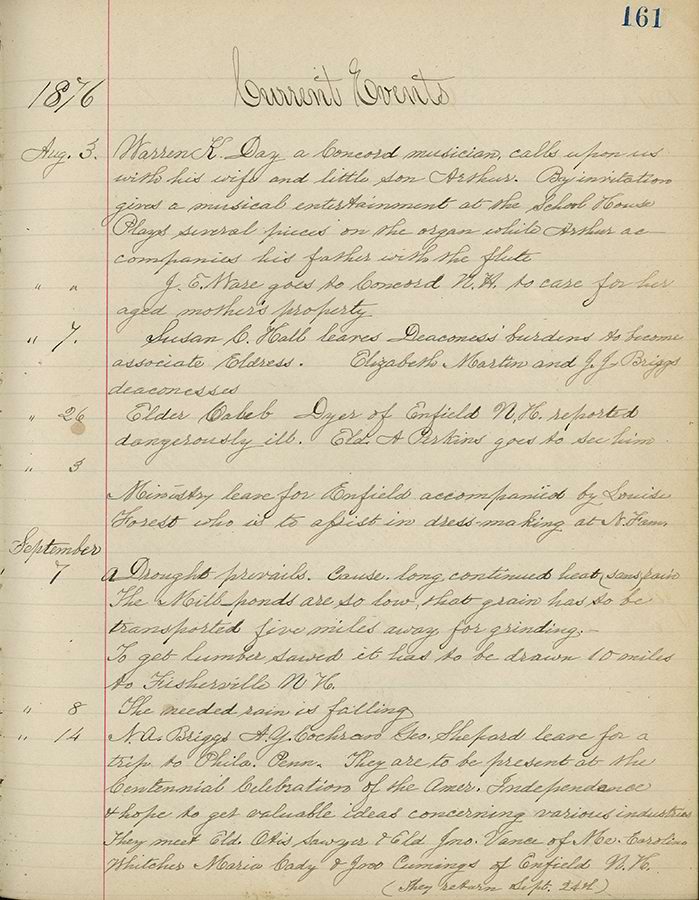 161
1876 Current Events
Aug. 3. Warren K. Day a Concord musician, calls upon us
with his wife and little son Arthur. By invitation
gives a musical entertainment at the School House
Plays several pieces on the organ while Arthur ac-
companies his father with the flute
" " J. E. Ware goes to Concord N.H. to care for her
aged mother's property
" 7. Susan C. Hall leaves Deaconess' burdens to become
associate Eldress. Elizabeth Martin and J. J. Briggs
deaconesses
" 26 Elder Caleb Dyer of Enfield N.H. reported
dangerously ill. Eld. A Perkins goes to see him
" 3
Ministry leave for Enfield accompanied by Louise
Forest who is to assist in dress-making at N. Fam.
September
7 A Drought prevails. Cause. long continued heat (sans rain
The Mill ponds are so low, that grain has to be
transported five miles away for grinding.-
To get lumber sawed it has to be drawn 10 miles
to Fisherville N H.
" 8 The needed rain is falling
" 14 N. A. Briggs A. Y. Cochran Geo. Shepard leave for a
trip to Phila. Penn. They are to be present at the
Centennial Celebration of the Amer. Independence
& hope to get valuable ideas concerning various industries
They meet Eld. Otis Sawyer & Eld Jno. Vance of Me. Caroline
Whitcher Maria Cady & Jno Cumings of Enfield N.H.
(They return Sept. 24th)